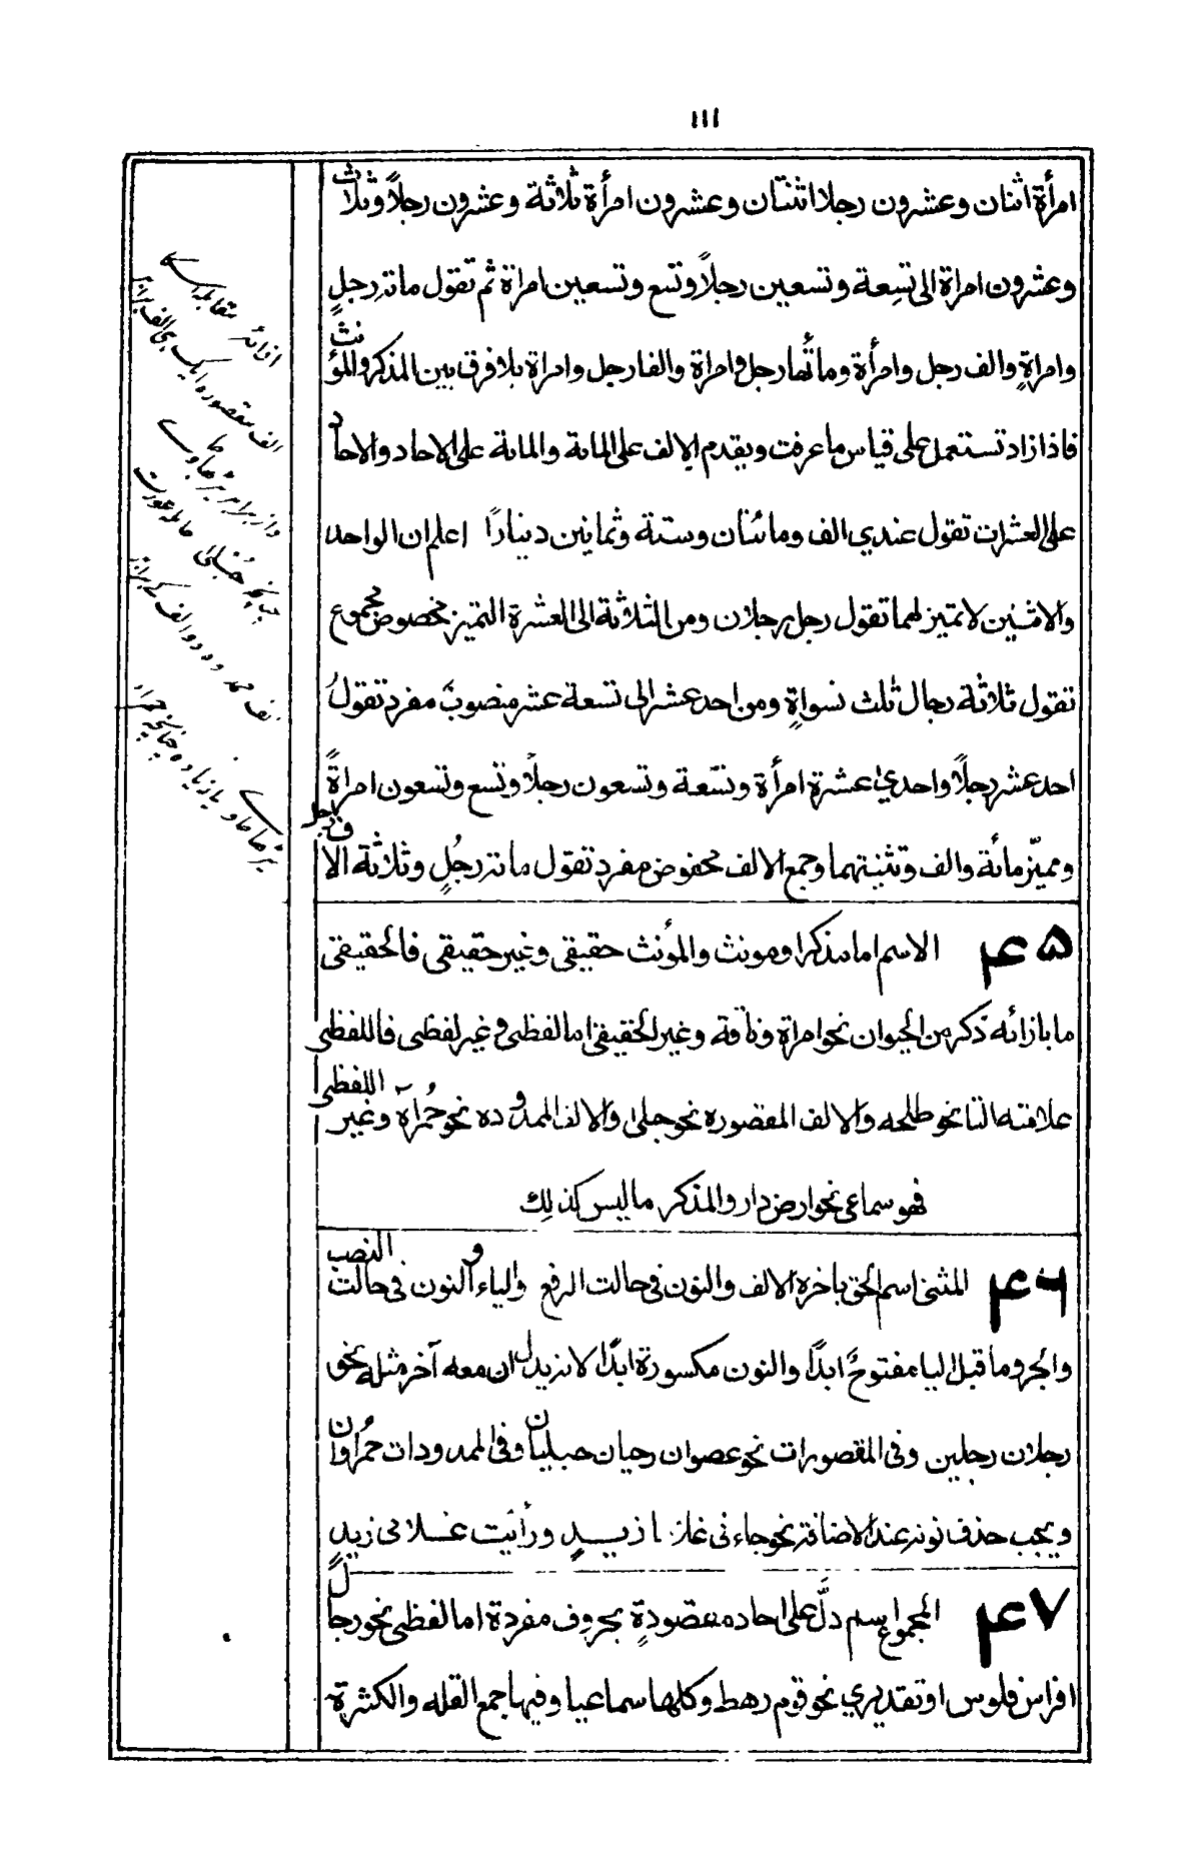 ١١١
امرأة اثنان وعشرون رجلا اثنتان وعشرون امرأة ثلاثة وعشرون رجلاً وثلاث
وعشرون امراة الى تسعة وتسعين رجلاً وتسع وتسعين امراة ثم تقول مائة رجلٍ
وامراةٍ والف رجل وامرأة ومائتا رجل وامراة والفا رجل وامراة بلا فرق بين المذكر والمؤنث
فاذا زاد تستعمل على قياس ما عرفت ويقدم الالف على المائة والمائة على الاحاد والاحاد
على العشرات تقول عندي الف ومائتان وستة وثمانين دينارًا اعلم ان الواحد
والاثنين لا تميز لهما تقول رجل رجلان ومن الثلاثة الى العشرة التميز مخصوص مجموع
تقول ثلاثة رجال ثلث نسواةٍ ومن احد عشر الى تسعة عشر منصوبٌ مفرد تقولُ
احد عشر رجلاً واحدي عشرة امرأة وتسّعة وتسعون رجلاً وتسع وتسعون امراةً
ومميّز مائة والف وتثنيتهما وجمع الالف مخفوض مفرد تقول مائة رجُلٍ وثلاثة الاف رجل
۴۵ الاسم اما مذكر او مونث والمؤنث حقيقي وغير حقيقي فالحقيقي
ما بازائه ذكر من الحيوان نحو امراة وناقة وغير الحقيقي اما لفظي وغير لفظي فاللفظي
علامته التا نحو طلحه والالف المقصوره نحو حبلى والالف الممدوده نحو حُمراۤ وغير اللفظي
فهو سماعي نحو ارض دار والمذكر ما ليس كذلك
۴۶ المثنى اسم الحق باخره الالف والنون في حالت الرفع والياء والنون في حالت النصب
والجر وما قبل اليا مفتوحٌ ابدًا والنون مكسورة ابدًا لا تزيدل ان معه آخر مثله نحو
رجلان رجلين وفى المقصورات نحو عصوان رحيان حبليان وفى الممدودات حمُراوان
ويجب حذف نونه عند الاضافة نحو جاءني غلاما زيدٍ ورأيت غلامي زيدٍ
۴۷ المجموع اسم دلَّ على احاد مقصودةٍ بحروف مفردة اما لفظي نحو رجالٌ
افراس فلوس او تقديري نحو قوم رهط وكلها سماعيا وفيها جمع القله والكثرة
الف مقصوره ايک